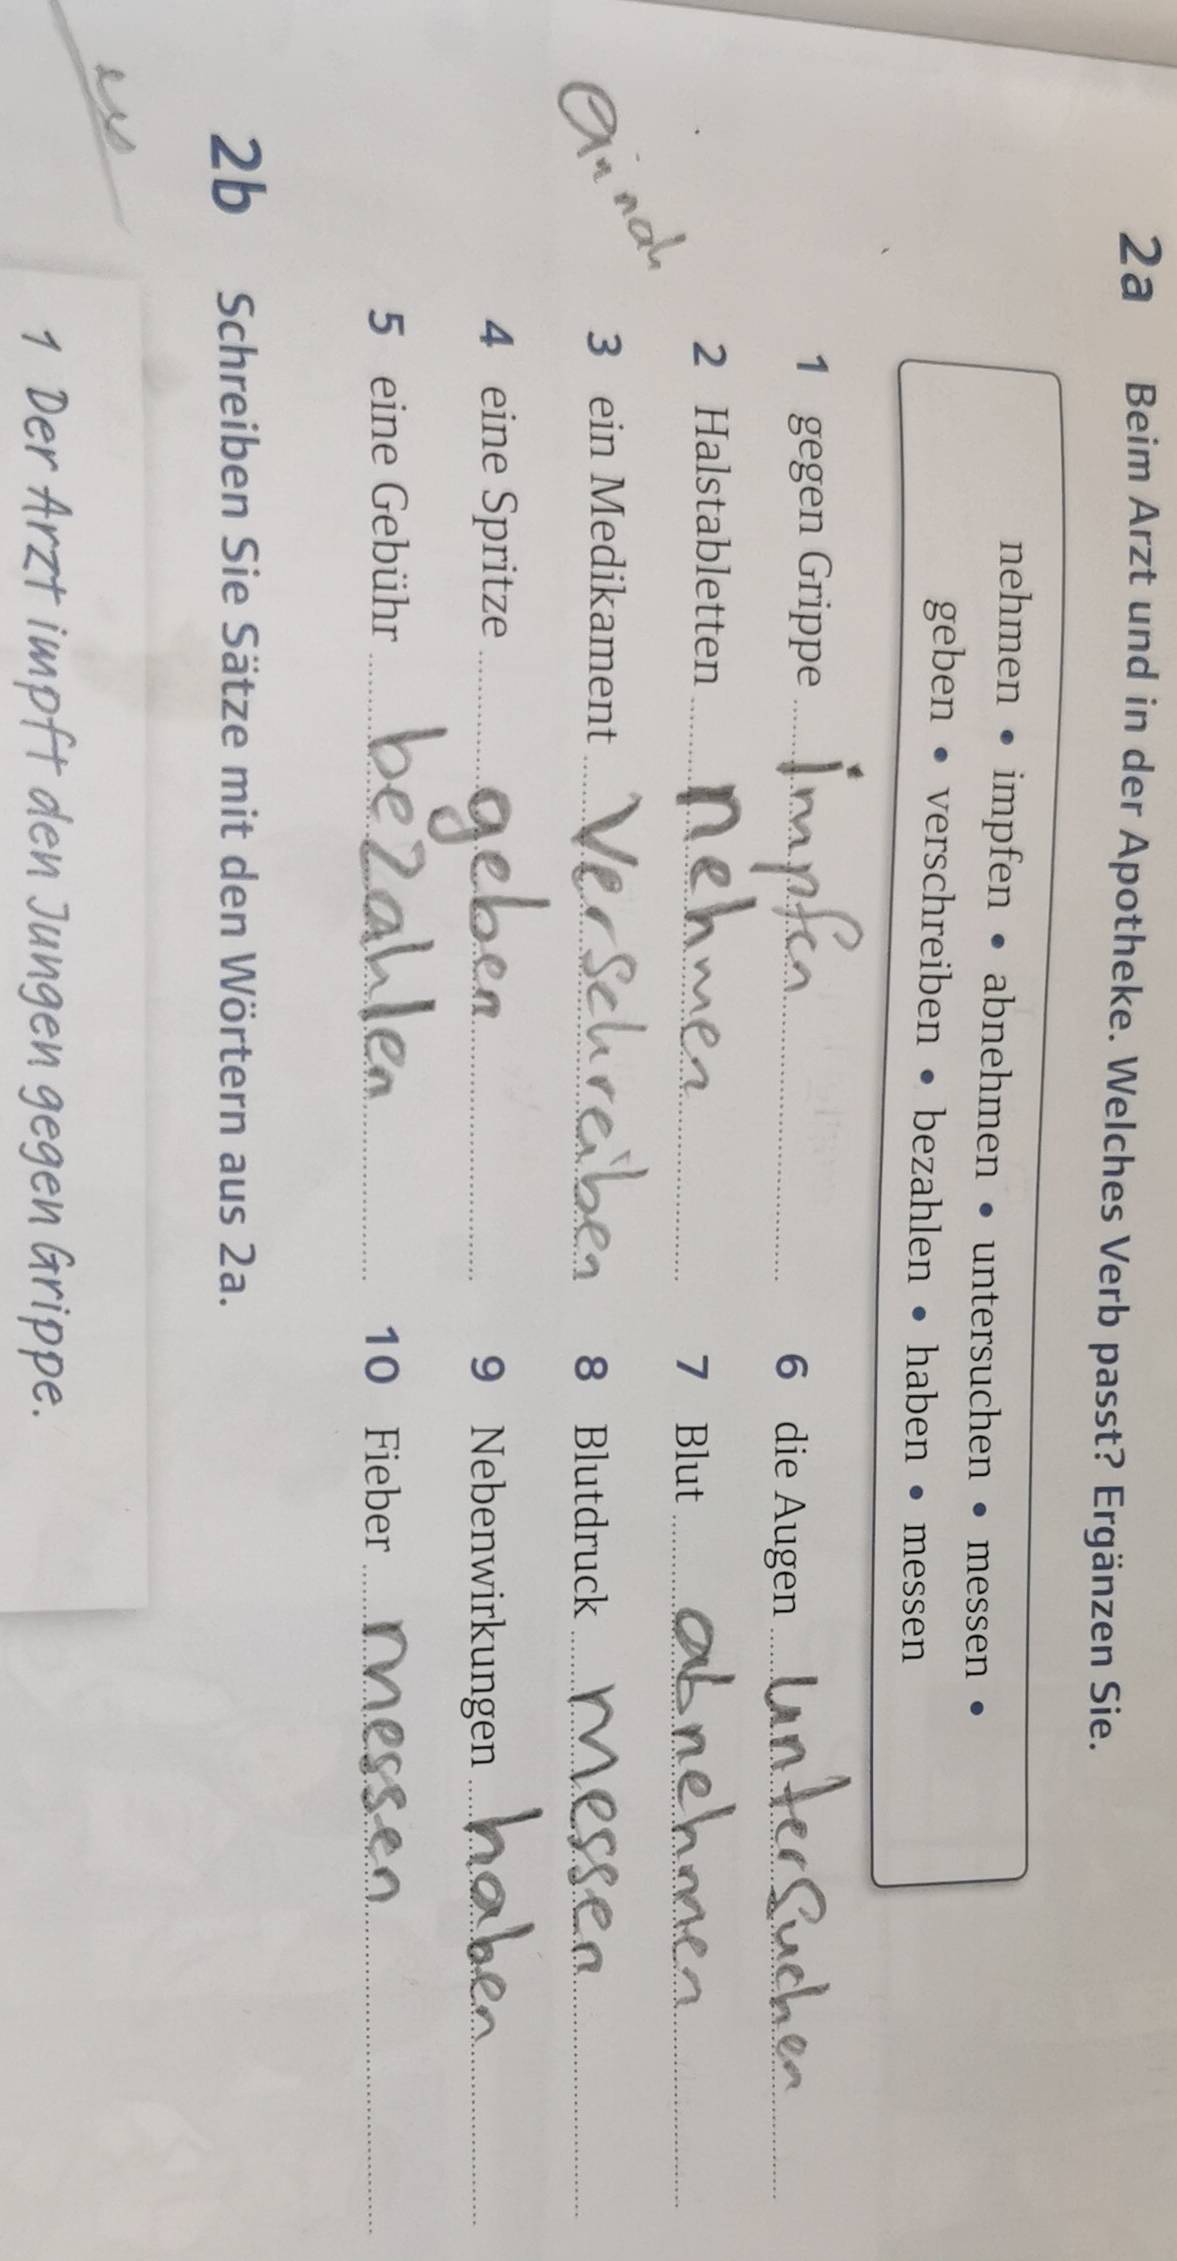 2a Beim Arzt und in der Apotheke. Welches Verb passt? Ergänzen Sie.
nehmen • impfen • abnehmen • untersuchen • messen •
geben • verschreiben • bezahlen • haben • messen
1 gegen Grippe impfen
2 Halstabletten nehmen
3 ein Medikament Verschreiben
4 eine Spritze geben
5 eine Gebühr bezahlen
6 die Augen untersuchen
7 Blut abnehmen
8 Blutdruck messen
9 Nebenwirkungen haben
10 Fieber messen
2b Schreiben Sie Sätze mit den Wörtern aus 2a.
1 Der Arzt impft den Jungen gegen Grippe.